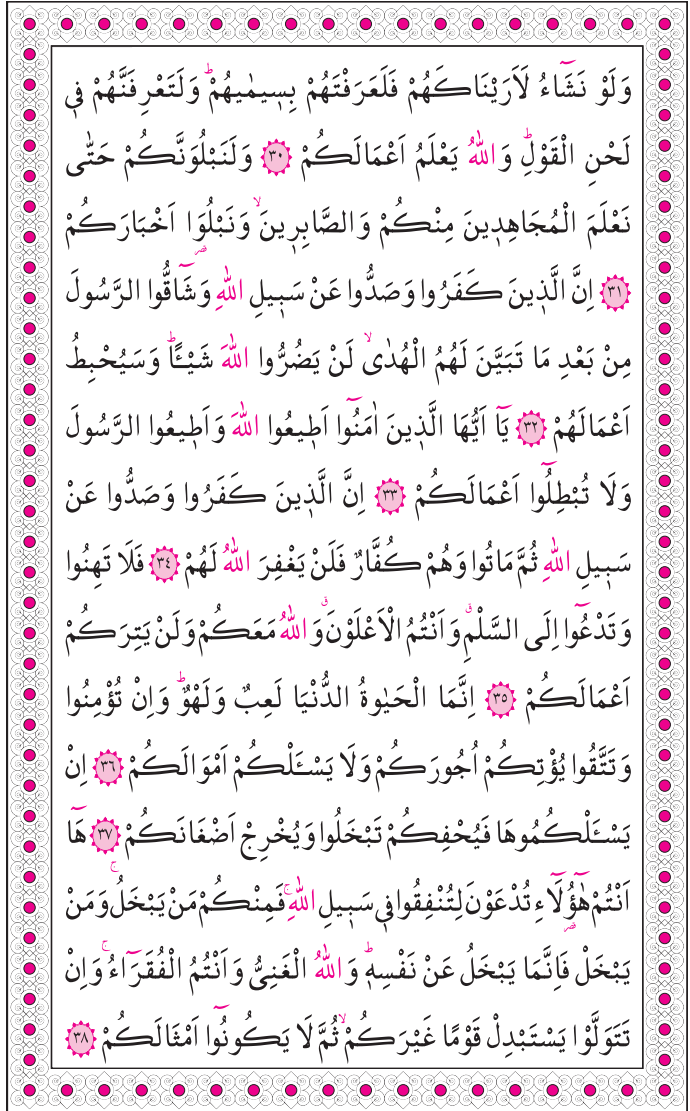 وَلَوْ نَشَٓاءُ لَاَرَيْنَاكَهُمْ فَلَعَرَفْتَهُمْ بِسٖيمٰيهُمْؕ وَلَتَعْرِفَنَّهُمْ فٖي
لَحْنِ الْقَوْلِؕ وَاللّٰهُ يَعْلَمُ اَعْمَالَكُمْ ﴿٣٠﴾ وَلَنَبْلُوَنَّكُمْ حَتّٰى
نَعْلَمَ الْمُجَاهِدٖينَ مِنْكُمْ وَالصَّابِرٖينَۙ وَنَبْلُوَا اَخْبَارَكُمْ
﴿٣١﴾ اِنَّ الَّذٖينَ كَفَرُوا وَصَدُّوا عَنْ سَبٖيلِ اللّٰهِ وَشَٓاقُّوا الرَّسُولَ
مِنْ بَعْدِ مَا تَبَيَّنَ لَهُمُ الْهُدٰىۙ لَنْ يَضُرُّوا اللّٰهَ شَيْـًٔاؕ وَسَيُحْبِطُ
اَعْمَالَهُمْ ﴿٣٢﴾ يَٓا اَيُّهَا الَّذٖينَ اٰمَنُٓوا اَطٖيعُوا اللّٰهَ وَاَطٖيعُوا الرَّسُولَ
وَلَا تُبْطِلُٓوا اَعْمَالَكُمْ ﴿٣٣﴾ اِنَّ الَّذٖينَ كَفَرُوا وَصَدُّوا عَنْ
سَبٖيلِ اللّٰهِ ثُمَّ مَاتُوا وَهُمْ كُفَّارٌ فَلَنْ يَغْفِرَ اللّٰهُ لَهُمْ ﴿٣٤﴾ فَلَا تَهِنُوا
وَتَدْعُٓوا اِلَى السَّلْمِۗ وَاَنْتُمُ الْاَعْلَوْنَۗ وَاللّٰهُ مَعَكُمْ وَلَنْ يَتِرَكُمْ
اَعْمَالَكُمْ ﴿٣٥﴾ اِنَّمَا الْحَيٰوةُ الدُّنْيَا لَعِبٌ وَلَهْوٌؕ وَاِنْ تُؤْمِنُوا
وَتَتَّقُوا يُؤْتِكُمْ اُجُورَكُمْ وَلَا يَسْـَٔلْكُمْ اَمْوَالَكُمْ ﴿٣٦﴾ اِنْ
يَسْـَٔلْكُمُوهَا فَيُحْفِكُمْ تَبْخَلُوا وَيُخْرِجْ اَضْغَانَكُمْ ﴿٣٧﴾ هَٓا
اَنْتُمْ هٰٓؤُ۬لَٓاءِ تُدْعَوْنَ لِتُنْفِقُوا فٖي سَبٖيلِ اللّٰهِۚ فَمِنْكُمْ مَنْ يَبْخَلُۚ وَمَنْ
يَبْخَلْ فَاِنَّمَا يَبْخَلُ عَنْ نَفْسِهٖؕ وَاللّٰهُ الْغَنِيُّ وَاَنْتُمُ الْفُقَرَٓاءُۚ وَاِنْ
تَتَوَلَّوْا يَسْتَبْدِلْ قَوْمًا غَيْرَكُمْۙ ثُمَّ لَا يَكُونُٓوا اَمْثَالَكُمْ ﴿٣٨﴾